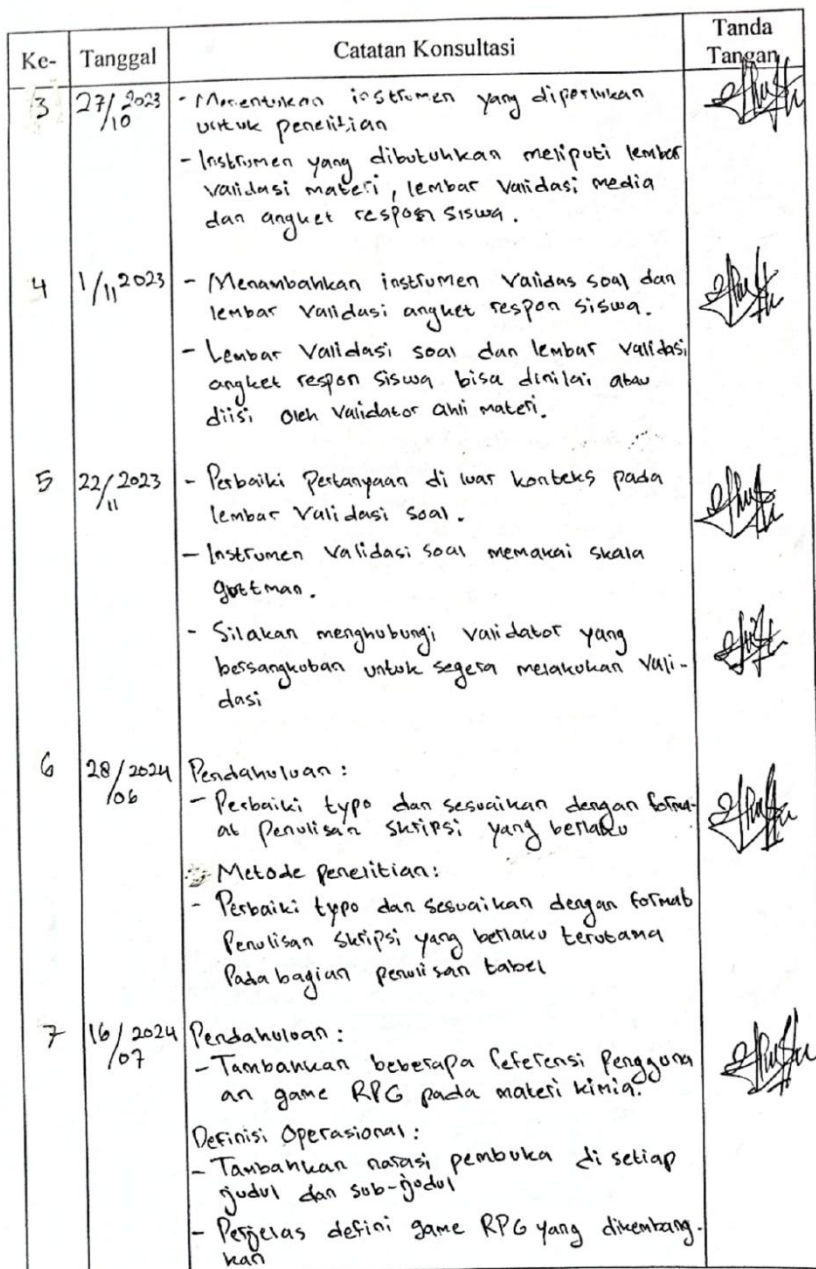 Ke- Tanggal Catatan Konsultasi Tanda Tangan
3 27/10 2023 - Menentukan instrumen yang diperlukan
untuk penelitian
- Instrumen yang dibutuhkan meliputi lembar
validasi materi, lembar validasi media
dan angket respon siswa.
4 1/11 2023 - Menambahkan instrumen validas soal dan
lembar validasi angket respon siswa.
- Lembar validasi soal dan lembar validasi
angket respon siswa bisa dinilai atau
diisi oleh validator ahli materi.
5 22/11 2023 - Perbaiki pertanyaan di luar konteks pada
lembar validasi soal.
- Instrumen validasi soal memakai skala
guttman.
- Silakan menghubungi validator yang
bersangkutan untuk segera melakukan vali-
dasi
6 28/06 2024 Pendahuluan:
- Perbaiki typo dan sesuaikan dengan form-
at penulisan skripsi yang berlaku
Metode penelitian:
- Perbaiki typo dan sesuaikan dengan format
penulisan skripsi yang berlaku terutama
pada bagian penulisan tabel
7 16/07 2024 Pendahuluan:
- Tambahkan beberapa referensi penggun
an game RPG pada materi kimia.
Definisi Operasional:
- Tambahkan narasi pembuka di setiap
judul dan sub-judul
- Perjelas defini game RPG yang dikembang-
kan